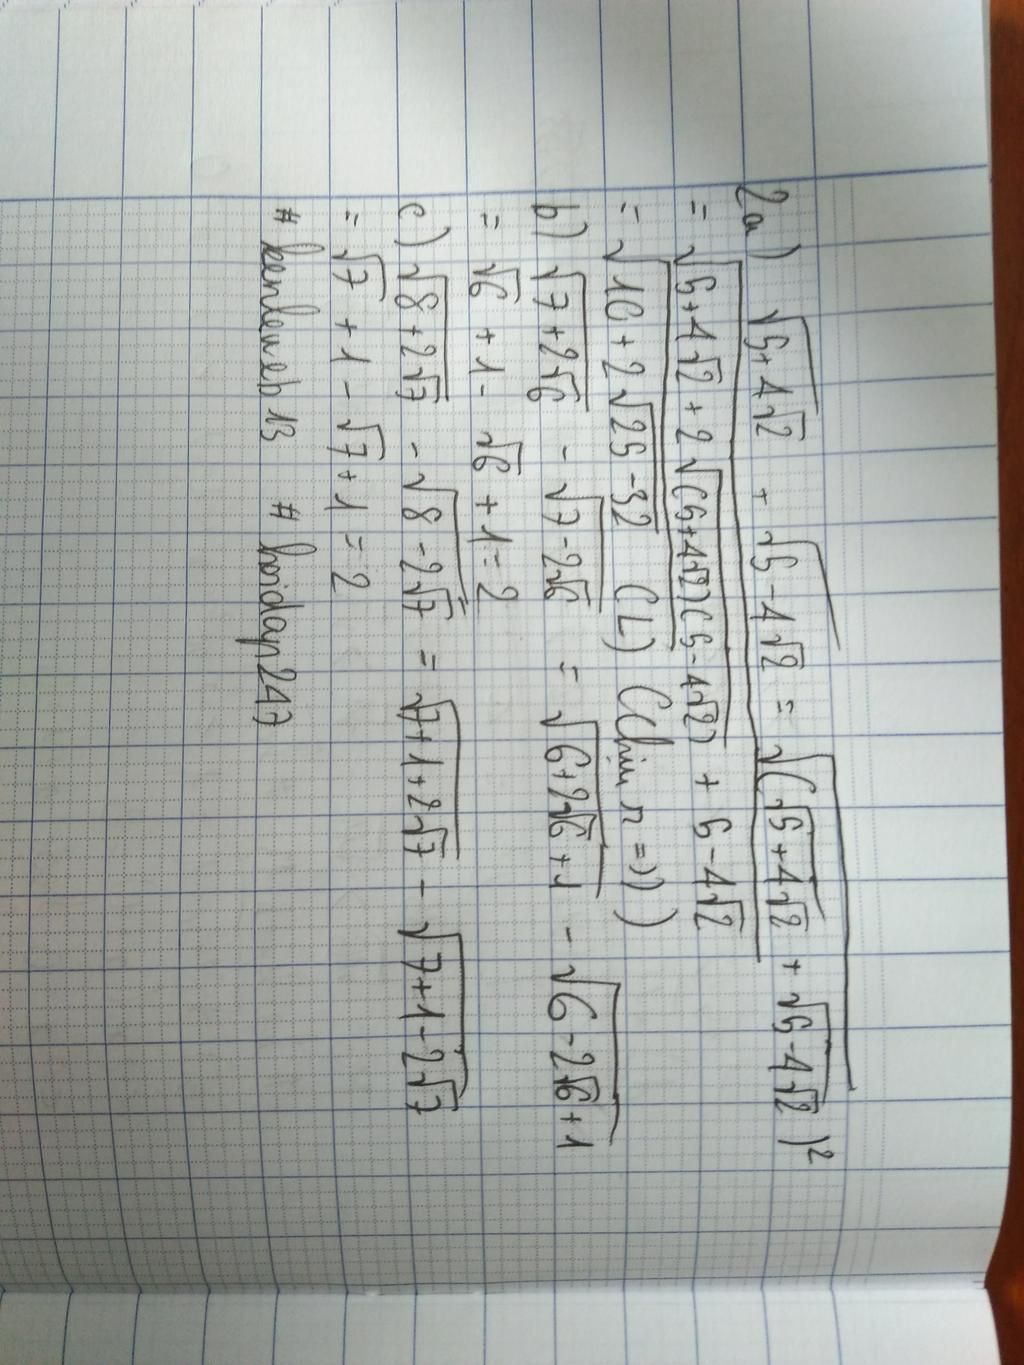 2a) √(5+4√2) + √(5-4√2) = √((√(5+4√2) + √(5-4√2))²)
= √(5+4√2 + 2√((5+4√2)(5-4√2)) + 5-4√2)
= √(10+2√(25-32)) (L) (Chịu r =)))
b) √(7+2√6) - √(7-2√6) = √(6+2√6+1) - √(6-2√6+1)
= √6 + 1 - √6 + 1 = 2
c) √(8+2√7) - √(8-2√7) = √(7+1+2√7) - √(7+1-2√7)
= √7 + 1 - √7 + 1 = 2
# kenloweb13 # hoidap247